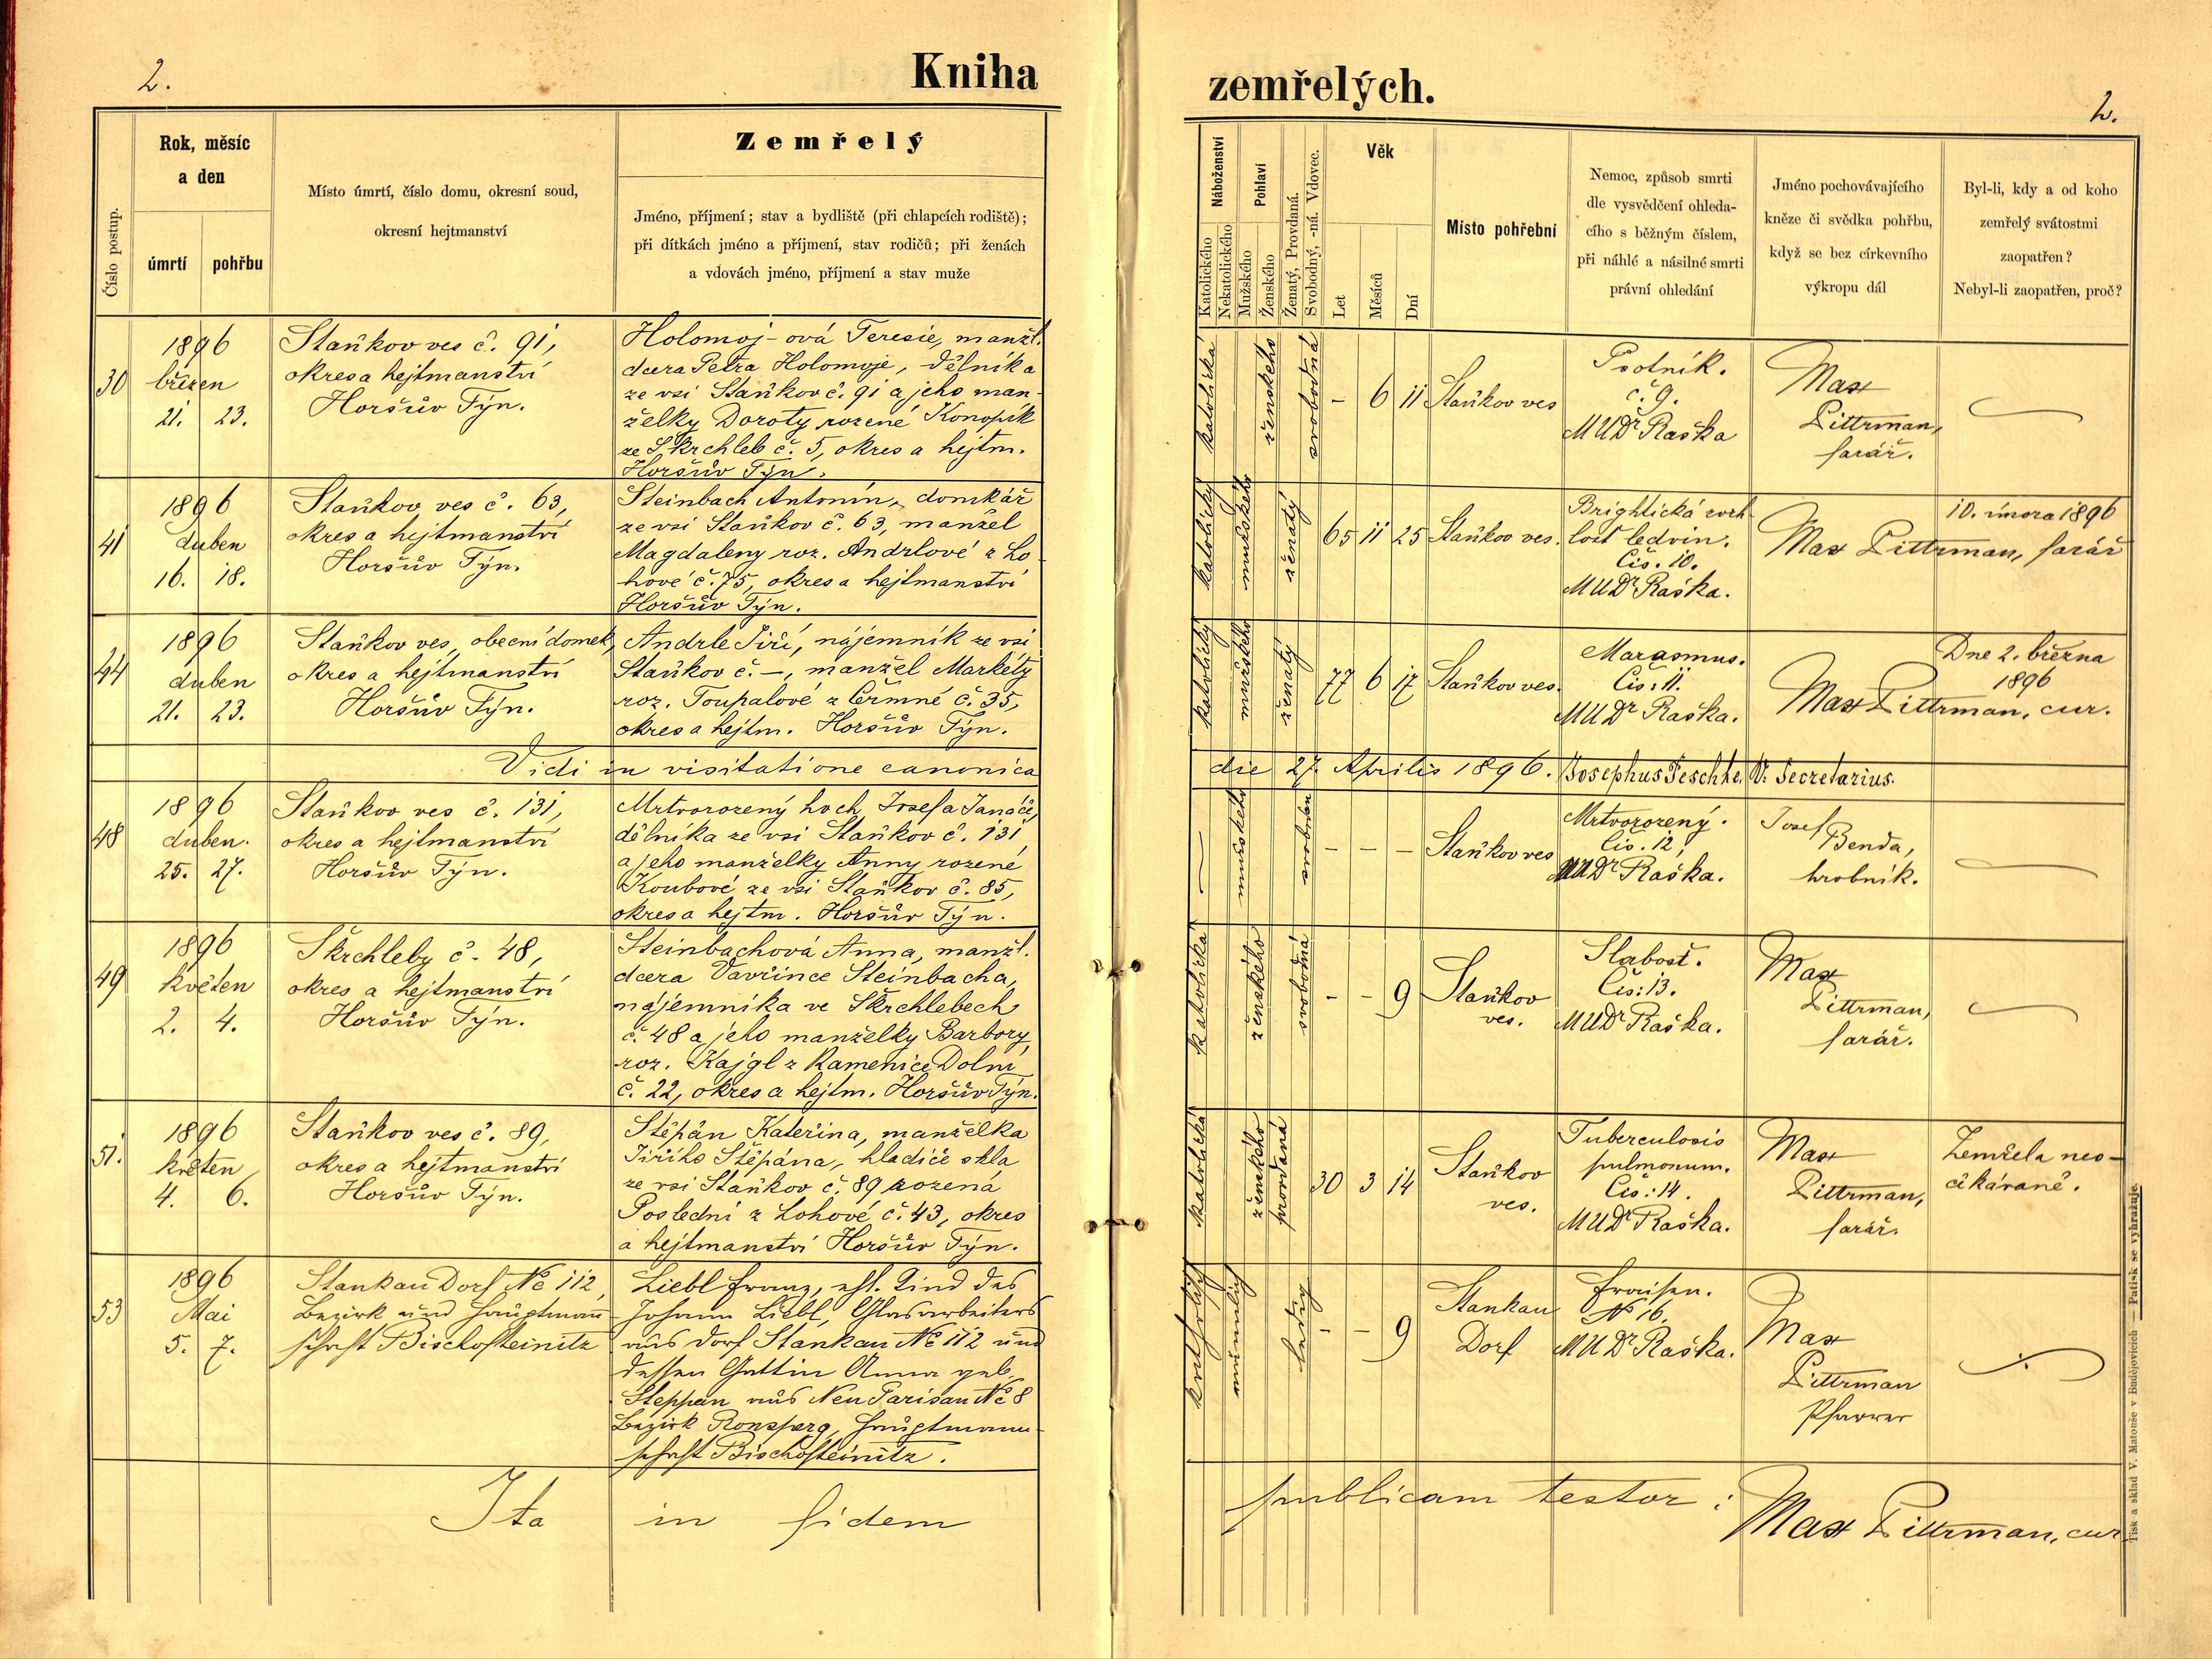 2.
Kniha
zemřelých.
2.
Číslo postup.
Rok, měsíc
a den
úmrtí
pohřbu
Místo úmrtí, číslo domu, okresní soud,
okresní hejtmanství
Zemřelý
Jméno, příjmení; stav a bydliště (při chlapcích rodiště);
při dítkách jméno a příjmení, stav rodičů; při ženách
a vdovách jméno, příjmení a stav muže
Náboženství
Katolického
Nekatolického
Pohlaví
Mužského
Ženského
Ženatý, Provdaná.
Svobodný, -ná. Vdovec.
Věk
Let
Měsíců
Dní
Místo pohřební
Nemoc, způsob smrti
dle vysvědčení ohleda-
cího s běžným číslem,
při náhlé a násilné smrti
právní ohledání
Jméno pochovávajícího
kněze či svědka pohřbu,
když se bez církevního
výkropu dál
Byl-li, kdy a od koho
zemřelý svátostmi
zaopatřen?
Nebyl-li zaopatřen, proč?
30
1896
březen
21. 23.
Staňkov ves č. 91,
okres a hejtmanství
Horšův Týn.
Holomoj-ová Teresie, manžl.
dcera Petra Holomoje, dělníka
ze vsi Staňkov č. 91 a jeho man-
želky Doroty rozené Konopík
ze Škrchleb č. 5, okres a hejtm.
Horšův Týn.
katolická
ženského
svobodná
- 6 11
Staňkov ves
Psotník.
č. 9.
MUDr Raška
Max
Pittrman,
farář.
41
1896
duben
16. 18.
Staňkov ves č. 63,
okres a hejtmanství
Horšův Týn.
Steinbach Antonín, domkář
ze vsi Staňkov č. 63, manžel
Magdaleny roz. Andrlové z Lo-
hové č. 75, okres a hejtmanství
Horšův Týn.
katolický
mužského
ženatý
65 11 25
Staňkov ves.
Brightická zvrh-
lost ledvin.
Čís. 10.
MUDr Raška.
10. února 1896
Max Pittrman, farář
44
1896
duben
21. 23.
Staňkov ves, obecní domek,
okres a hejtmanství
Horšův Týn.
Andrle Jiří, nájemník ze vsi
Staňkov č. –, manžel Markéty
roz. Toupalové z Čermné č. 35,
okres a hejtm. Horšův Týn.
katolický
mužského
ženatý
77 6 17
Staňkov ves.
Marasmus.
Čís: 11.
MUDr Raška.
Dne 2. března
1896
Max Pittrman, cur.
Vidi in visitatione canonica
die 27. Aprilis 1896. Josephus Teschke, V. Secretarius.
48
1896
duben.
25. 27.
Staňkov ves č. 131,
okres a hejtmanství
Horšův Týn.
Mrtvorozený hoch Josefa Janáče,
dělníka ze vsi Staňkov č. 131
a jeho manželky Anny rozené
Koubové ze vsi Staňkov č. 85,
okres a hejtm. Horšův Týn.
mužského
svoboden
- - -
Staňkov ves
Mrtvorozený.
Čís. 12,
MUDr Raška.
Josef
Benda,
hrobník.
49
1896
květen
2. 4.
Škrchleby č. 48,
okres a hejtmanství
Horšův Týn.
Steinbachová Anna, manžl.
dcera Vavřince Steinbacha,
nájemníka ve Škrchlebech
č. 48 a jeho manželky Barbory,
roz. Kajgl z Kamenice Dolní
č. 22, okres a hejtm. Horšův Týn.
katolická
ženského
svobodná
- - 9
Staňkov
ves.
Slabost.
Čís: 13.
MUDr Raška.
Max
Pittrman,
farář.
51.
1896
květen
4. 6.
Staňkov ves č. 89,
okres a hejtmanství
Horšův Týn.
Štěpán Kateřina, manželka
Jiřího Štěpána, hladiče skla
ze vsi Staňkov č. 89 rozená
Poslední z Lohové č. 43, okres
a hejtmanství Horšův Týn.
katolická
ženského
provdaná
30 3 14
Staňkov
ves.
Tuberculosis
pulmonum.
Čís: 14.
MUDr Raška.
Max
Pittrman,
farář.
Zemřela neo-
čekávaně.
53
1896
Mai
5. 7.
Stankau Dorf No 112,
Bezirk und Hauptmann-
schaft Bischofteinitz
Liebl Franz, ehl. Kind des
Johann Liebl, Glasarbeiters
aus Dorf Stankau No 112 und
dessen Gattin Anna geb.
Steppan aus Neu Parisau No 8
Bezirk Ronsperg, Hauptmann-
schaft Bischofteinitz.
katholisch
männlich
ledig
- - 9
Stankau
Dorf
Fraisen.
No 16.
MUDr Raška.
Max
Pittrman
Pfarrer
Ita in fidem publicam testor:
Max Pittrman, cur
Tisk a sklad V. Matouše v Budějovicích — Patisk se vyhražuje.